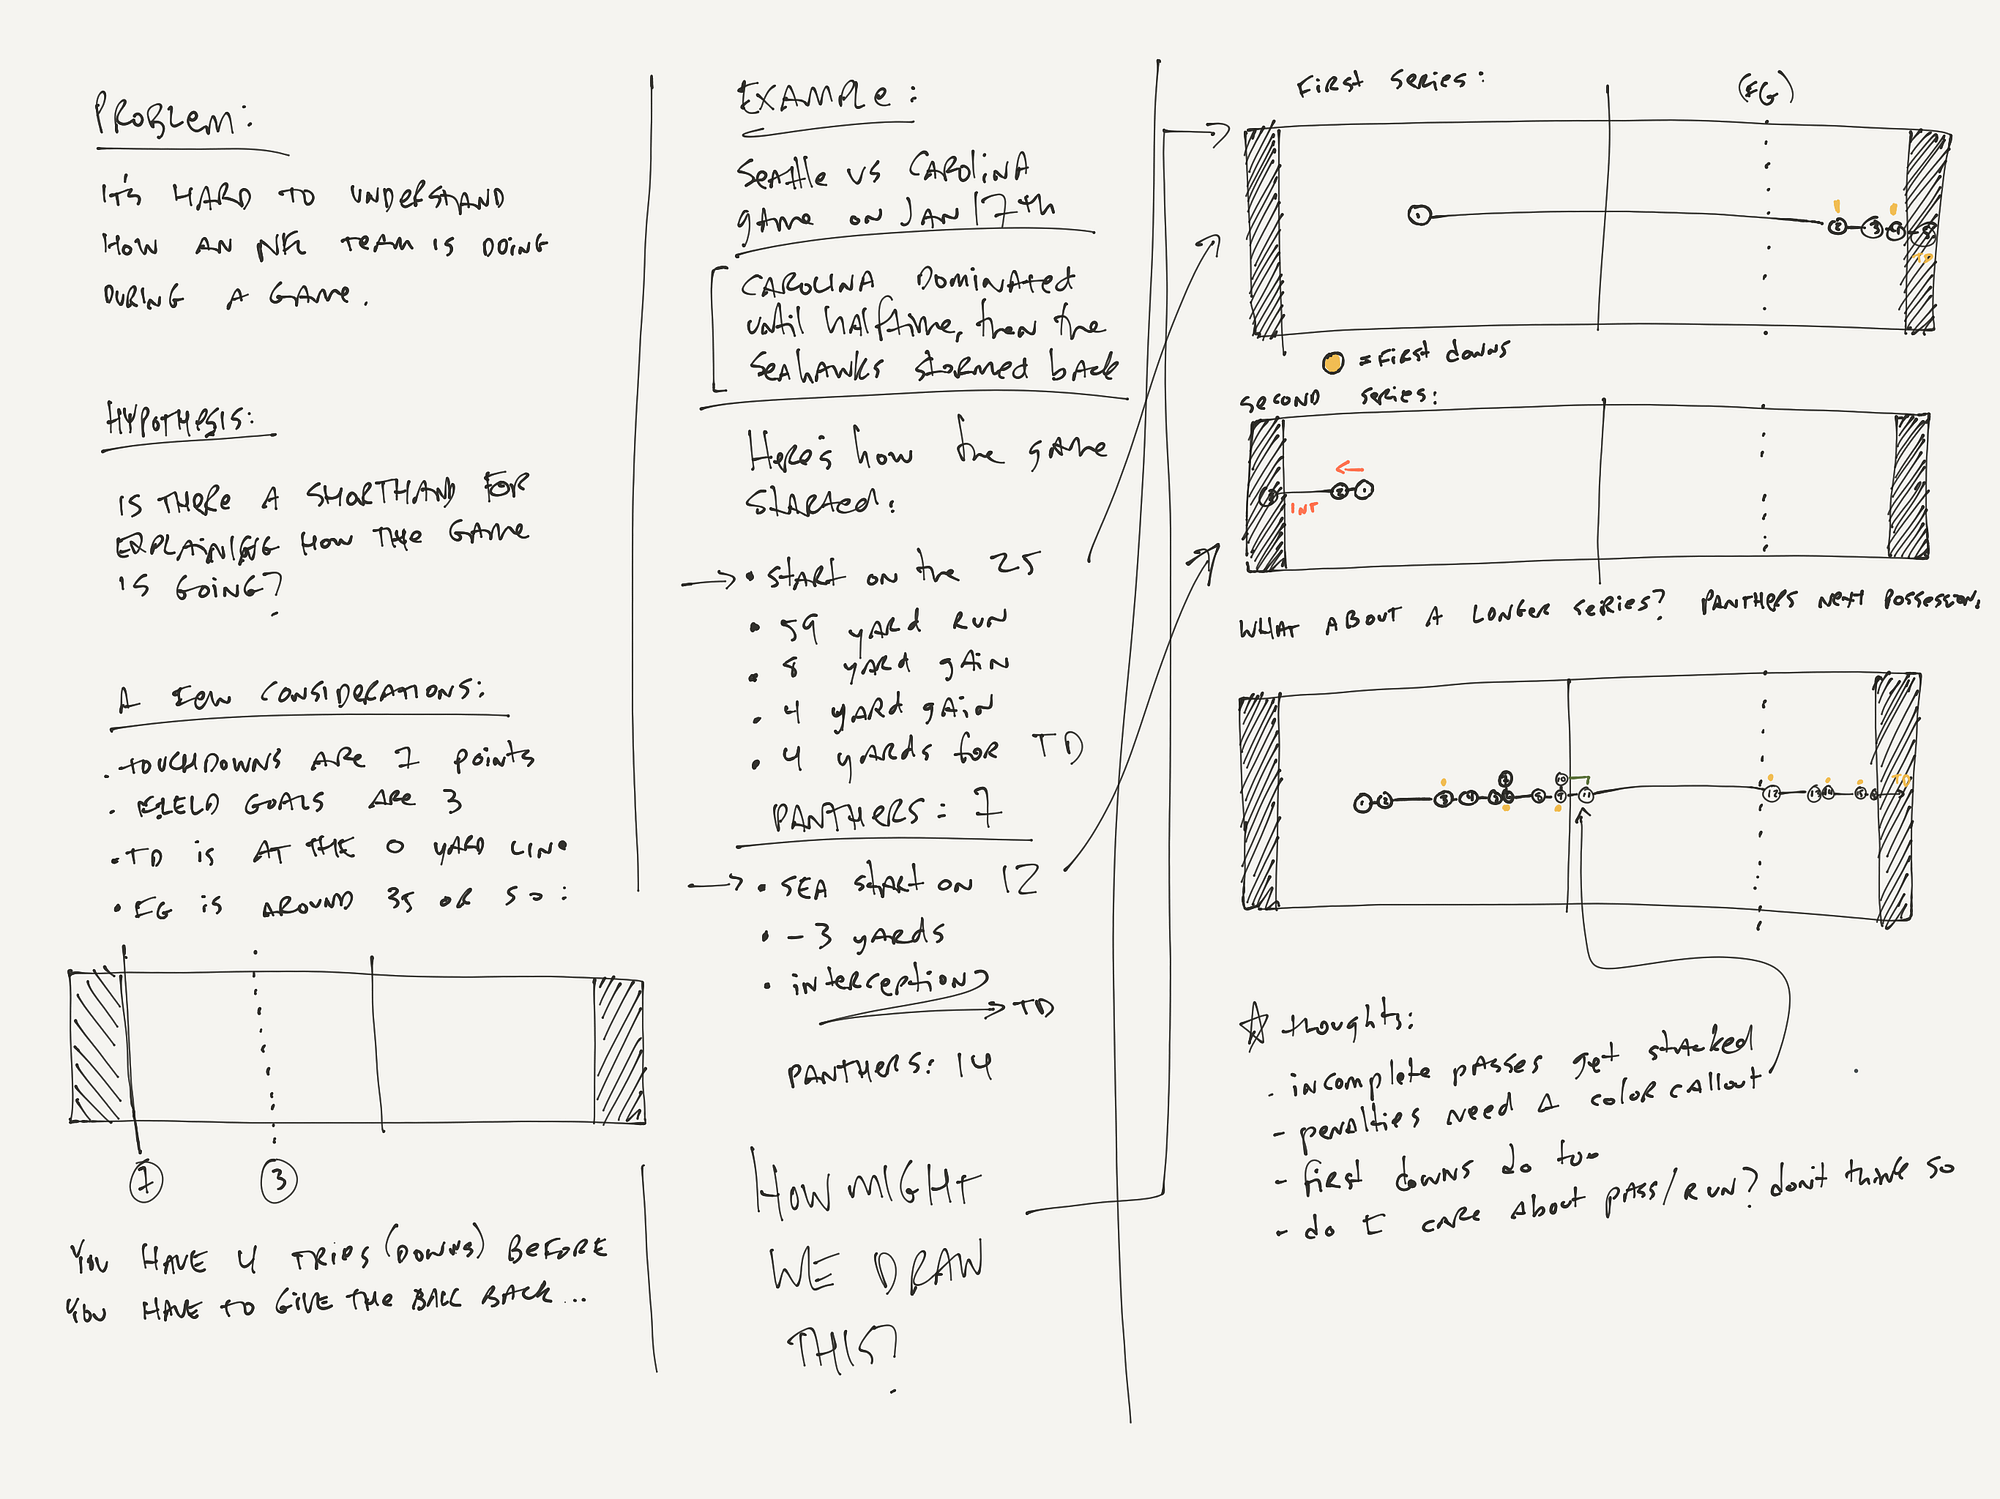 PROBLEM:
IT'S HARD TO UNDERSTAND
HOW AN NFL TEAM IS DOING
DURING A GAME.
HYPOTHESIS:
IS THERE A SHORTHAND FOR
EXPLAINING HOW THE GAME
IS GOING?
A FEW CONSIDERATIONS:
. TOUCHDOWNS ARE 7 POINTS
. FIELD GOALS ARE 3
. TD IS AT THE 0 YARD LINE
• FG IS AROUND 35 OR SO:
7
3
YOU HAVE 4 TRIPS (DOWNS) BEFORE
YOU HAVE TO GIVE THE BALL BACK...
EXAMPLE:
Seattle VS CAROLINA
game ON JAN 17th
CAROLINA Dominated
until halftime, then the
SEAHAWKS stormed back
Here's how the game
started:
→ • START ON the 25
• 59 yard RUN
• 8 yard gain
• 4 yard gain
• 4 yards for TD
PANTHERS: 7
→ • SEA start ON 12
• -3 yards
• interception
→ TD
PANTHERS: 14
HOW MIGHT
WE DRAW
THIS?
First series:
(FG)
1
2
3
4
5
TD
= First downs
Second series:
3
2
1
INT
WHAT ABOUT A LONGER SERIES? PANTHERS NEXT POSSESSION.
7
10
1
2
3
4
5
6
8
9
11
12
13
14
15
TD
☆ thoughts:
- incomplete passes get stacked
- penalties need a color callout
- first downs do too
- do I care about pass/run? don't think so